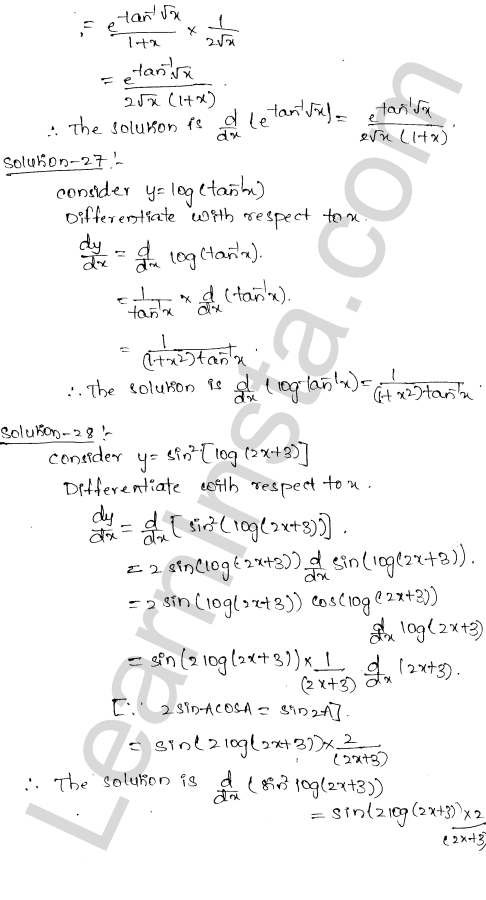 = e^(tan⁻¹√x) / (1+x) × 1/(2√x)
= e^(tan⁻¹√x) / (2√x (1+x)).
∴ The solution is d/dx (e^(tan⁻¹√x)) = e^(tan⁻¹√x) / (2√x (1+x)).
Solution-27:-
Consider y = log(tan⁻¹x)
Differentiate with respect to x.
dy/dx = d/dx log(tan⁻¹x).
= 1/(tan⁻¹x) × d/dx (tan⁻¹x).
= 1/((1+x²)tan⁻¹x).
∴ The solution is d/dx (log tan⁻¹x) = 1/((1+x²)tan⁻¹x).
Solution-28:-
Consider y = sin²[log(2x+3)]
Differentiate with respect to x.
dy/dx = d/dx [sin²(log(2x+3))].
= 2 sin(log(2x+3)) d/dx sin(log(2x+3)).
= 2 sin(log(2x+3)) cos(log(2x+3))
d/dx log(2x+3)
= sin(2log(2x+3)) × 1/(2x+3) d/dx (2x+3).
[∵ 2sinAcosA = sin2A].
= sin(2log(2x+3)) × 2/(2x+3)
∴ The solution is d/dx (sin² log(2x+3))
= sin(2log(2x+3)) × 2/(2x+3)
LearnInsta.com